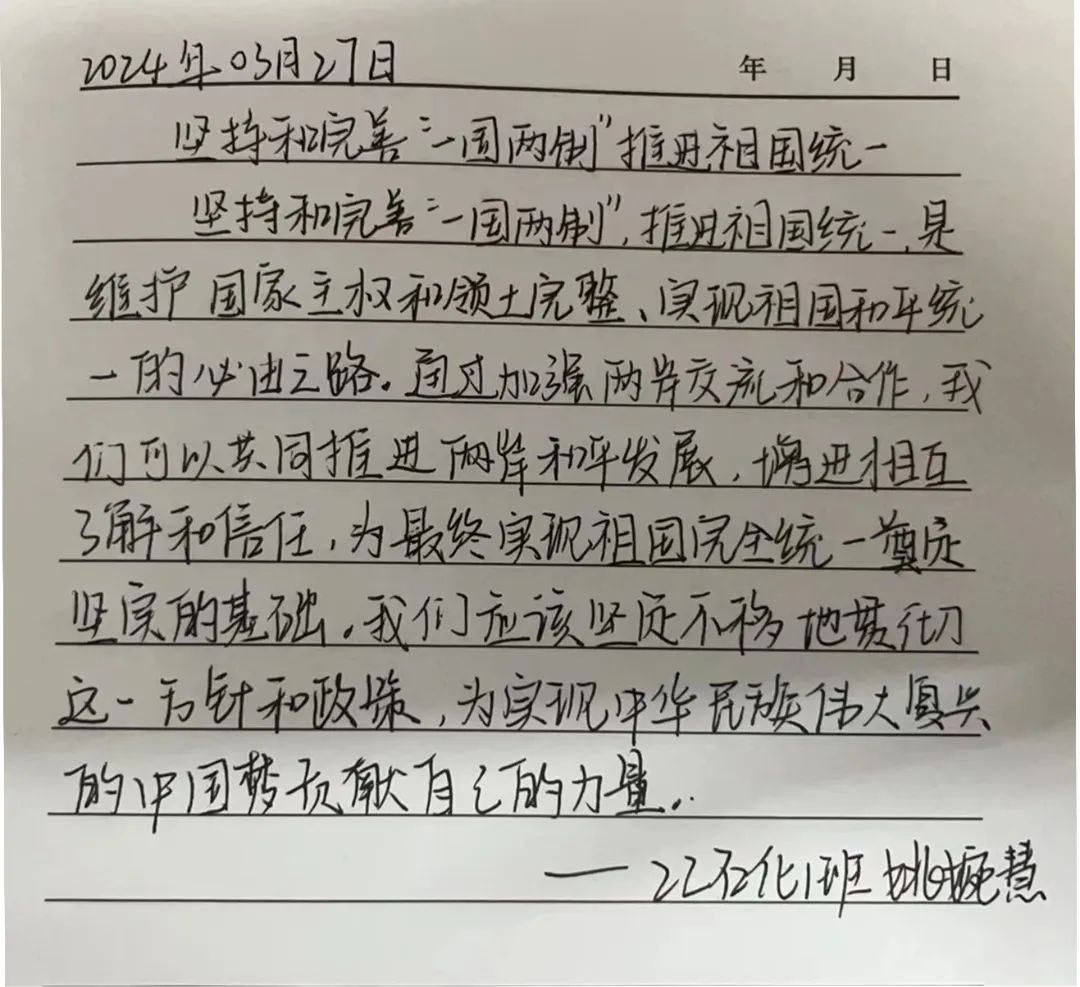 2024年03月27日 年 月 日
坚持和完善“一国两制”推进祖国统一
坚持和完善“一国两制”,推进祖国统一,是
维护国家主权和领土完整、实现祖国和平统
一的必由之路。通过加强两岸交流和合作,我
们可以共同推进两岸和平发展,增进相互
了解和信任,为最终实现祖国完全统一奠定
坚实的基础。我们应该坚定不移地贯彻
这一方针和政策,为实现中华民族伟大复兴
的中国梦贡献自己的力量。
——22石化1班姚婉慧